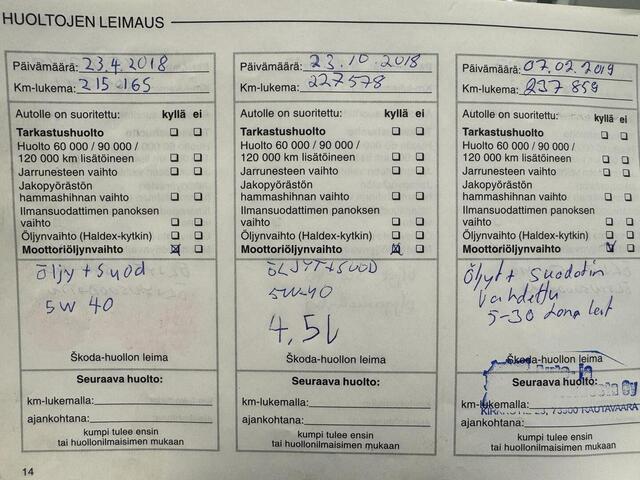 HUOLTOJEN LEIMAUS
Päivämäärä: 23.4.2018
Km-lukema: 215 165
Autolle on suoritettu: kyllä ei
Tarkastushuolto
Huolto 60 000 / 90 000 /
120 000 km lisätöineen
Jarrunesteen vaihto
Jakopyörästön
hammashihnan vaihto
Ilmansuodattimen panoksen
vaihto
Öljynvaihto (Haldex-kytkin)
Moottoriöljynvaihto
öljy + suod
5W 40
Škoda-huollon leima
Seuraava huolto:
km-lukemalla:
ajankohtana:
kumpi tulee ensin
tai huollonilmaisimen mukaan
14
Päivämäärä: 23.10.2018
Km-lukema: 227578
Autolle on suoritettu: kyllä ei
Tarkastushuolto
Huolto 60 000 / 90 000 /
120 000 km lisätöineen
Jarrunesteen vaihto
Jakopyörästön
hammashihnan vaihto
Ilmansuodattimen panoksen
vaihto
Öljynvaihto (Haldex-kytkin)
Moottoriöljynvaihto
ÖLJYT+SUOD
5W-40
4,5l
Škoda-huollon leima
Seuraava huolto:
km-lukemalla:
ajankohtana:
kumpi tulee ensin
tai huollonilmaisimen mukaan
Päivämäärä: 07.02.2019
Km-lukema: 237 859
Autolle on suoritettu: kyllä ei
Tarkastushuolto
Huolto 60 000 / 90 000 /
120 000 km lisätöineen
Jarrunesteen vaihto
Jakopyörästön
hammashihnan vaihto
Ilmansuodattimen panoksen
vaihto
Öljynvaihto (Haldex-kytkin)
Moottoriöljynvaihto
Öljyt + suodatin
vaihdettu
5-30
Škoda-huollon leima
Seuraava huolto:
Oy
km-lukemalla:
RAUTAVAARA
ajankohtana:
kumpi tulee ensin
tai huollonilmaisimen mukaan